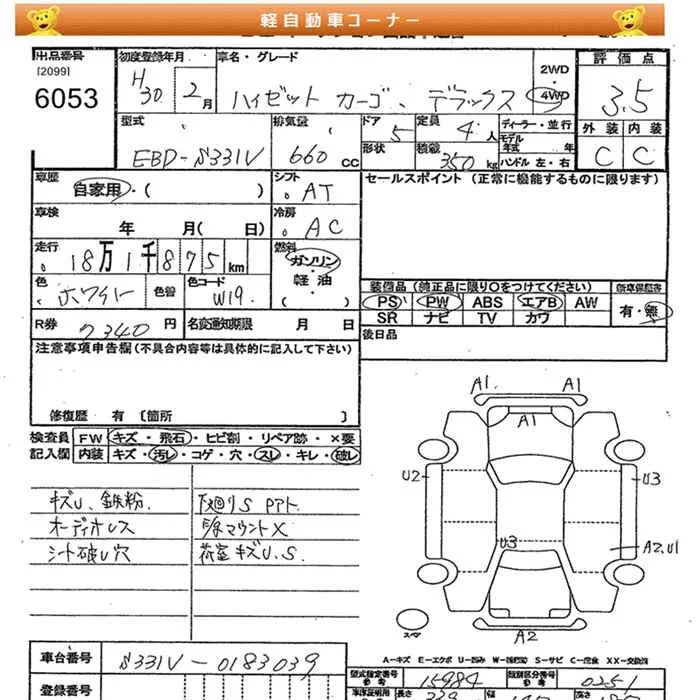 軽自動車コーナー
出品番号
[2099]
6053
初度登録年月
H30年 2月
車名・グレード
ハイゼット カーゴ、デラックス
2WD
・
4WD
評価点
3.5
外装 内装
C C
型式
EBD-S331V
排気量
660 cc
ドア
5
形状
定員
4人
積載
350kg
ディーラー・並行
モデル年式 年
ハンドル 左・右
車歴
自家用・( )
シフト
AT
セールスポイント (正常に機能するものに限ります)
車検
年 月( 日)
冷房
AC
走行
18万1千875km
燃料
ガソリン・
軽油・
( )
色
ホワイト
色替
色コード
W19
装備品 (純正品に限り○をつけてください)
PS PW ABS エアB AW
SR ナビ TV カワ
新車保証書
有・無
R券
7340円
名変通知期限 月 日
後日品
注意事項申告欄(不具合内容等は具体的に記入して下さい)
修復歴 有 〔箇所 〕
検査員記入欄
FW キズ・飛石・ヒビ割・リペア跡・×要
内装 キズ・汚レ・コゲ・穴・スレ・キレ・破レ
キズU、鉄粉
オーディオレス
シート破レ穴
下廻りS Pアト
荷室キズU.S
A1
A1
A1
U2
U3
U3
A2.U1
A2
スペア
A-キズ E-エクボ U-凹み S-サビ C-腐食 XX-交換済
車台番号
S331V-0183039
登録番号
型式指定番号
参考
15984
類別区分番号
参考
0251
長さ
339